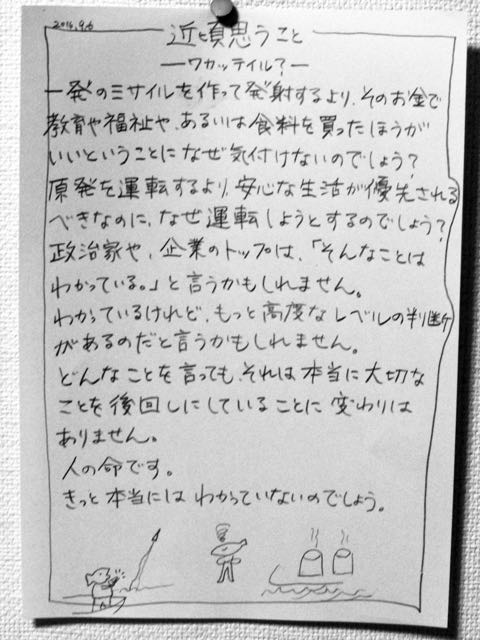 2016.9.6
近頃思うこと
―ワカッテイル?―
一発のミサイルを作って発射するより、そのお金で
教育や福祉や、あるいは食料を買ったほうが
いいということになぜ気付けないのでしょう?
原発を運転するより、安心な生活が優先される
べきなのに、なぜ運転しようとするのでしょう?
政治家や、企業のトップは、「そんなことは
わかっている。」と言うかもしれません。
わかっているけれど、もっと高度なレベルの判断
があるのだと言うかもしれません。
どんなことを言っても、それは本当に大切な
ことを後回しにしていることに変わりは
ありません。
人の命です。
きっと本当にはわかっていないのでしょう。